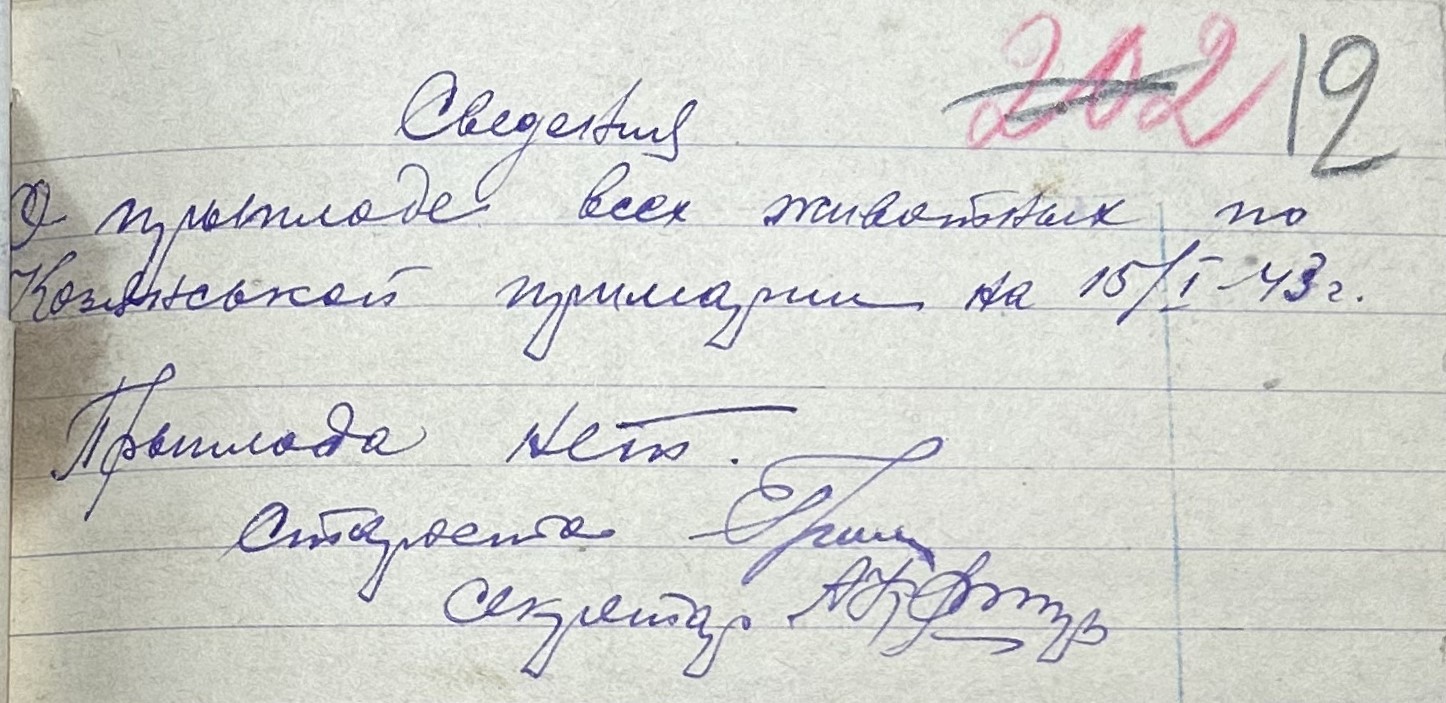 202 12
Сведения
О прыплоде всех животных по
Козянськой примарии на 15/I-43 г.
Прыплода нет.
Староста
Секретар